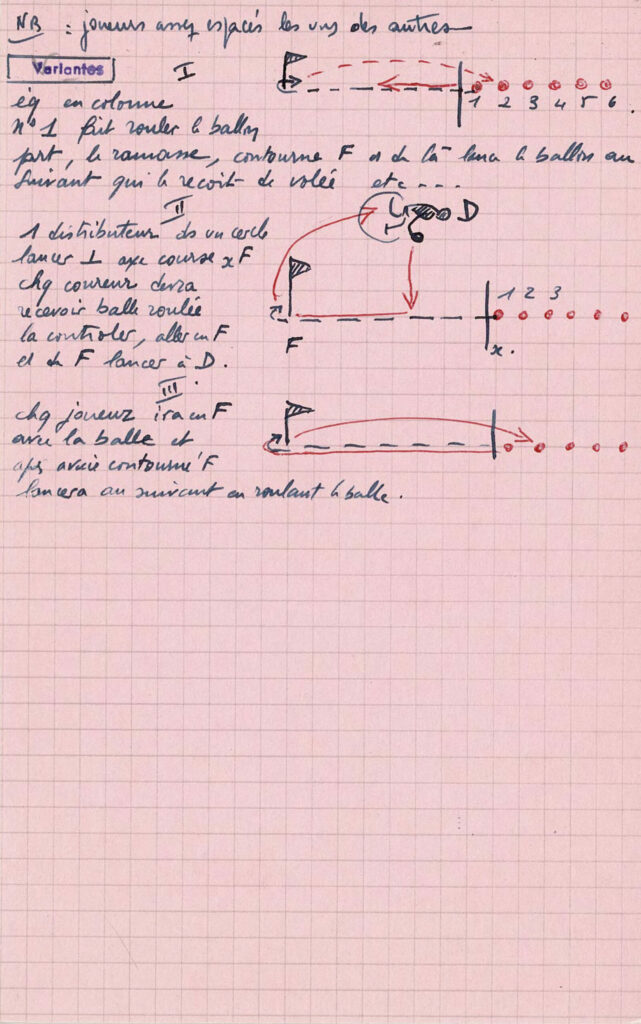 NB : joueurs assez espacés les uns des autres
Variantes
I
1 2 3 4 5 6 .
éq en colonne
n° 1 fait rouler le ballon
part, le ramasse, contourne F et de là lance le ballon au
suivant qui le reçoit de volée etc ----
II
D
1 distributeur ds un cercle
lancer ⊥ axe course xF
chq coureur devra
1 2 3
recevoir balle roulée
la controler, aller en F
F
x.
et de F lancer à D.
III
chq joueur ira en F
avec la balle et
après avoir contourné F
lancera au suivant en roulant la balle.